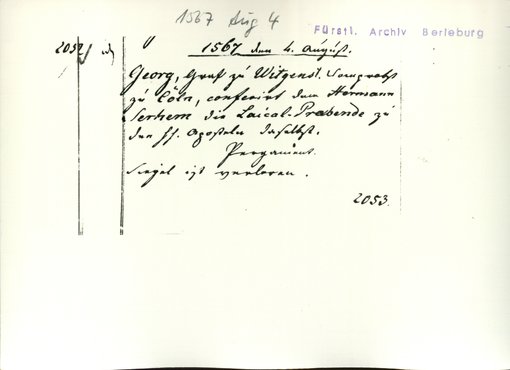 1567 Aug 4
Fürstl. Archiv Berleburg
2052
1567 den 4. August.
Georg, Graf zu Witgenst. Domprobst
zu Cöln, conferirt dem Hermann
Serhem die Laical-Präbende zu
den ff. Aposteln daselbst.
Pergament.
Siegel ist verloren.
2053.